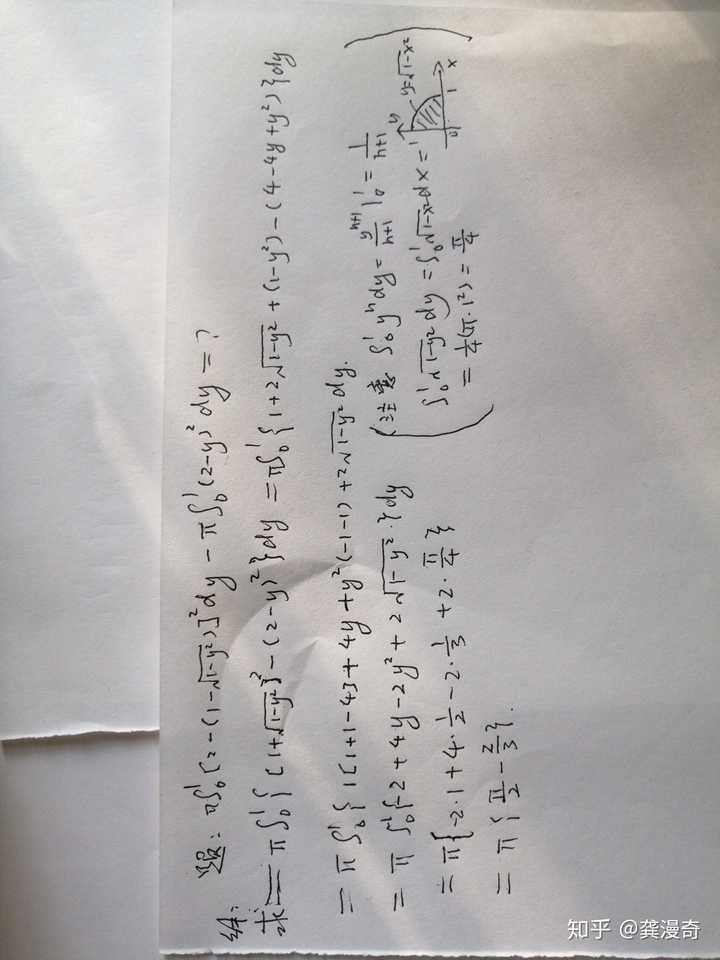 题: π∫₀¹[2-(1-√(1-y²))]²dy - π∫₀¹(2-y)²dy = ?
解:
求 = π∫₀¹{[1+√(1-y²)]²-(2-y)²}dy = π∫₀¹{1+2√(1-y²)+(1-y²)-(4-4y+y²)}dy
= π∫₀¹{1[1+1-4]+4y+y²(-1-1)+2√(1-y²)dy.
= π∫₀¹{-2+4y-2y²+2√(1-y²)}dy
= π{-2·1+4·1/2-2·1/3+2·π/4}
= π{π/2-2/3}.
(注意 ∫₀¹yⁿdy = yⁿ⁺¹/(n+1)|₀¹ = 1/(n+1)
∫₀¹√(1-y²)dy = ∫₀¹√(1-x²)dx =
= 1/4(π·1²) = π/4)
y
y=√(1-x²)
1
0
1
x
知乎 @龚漫奇